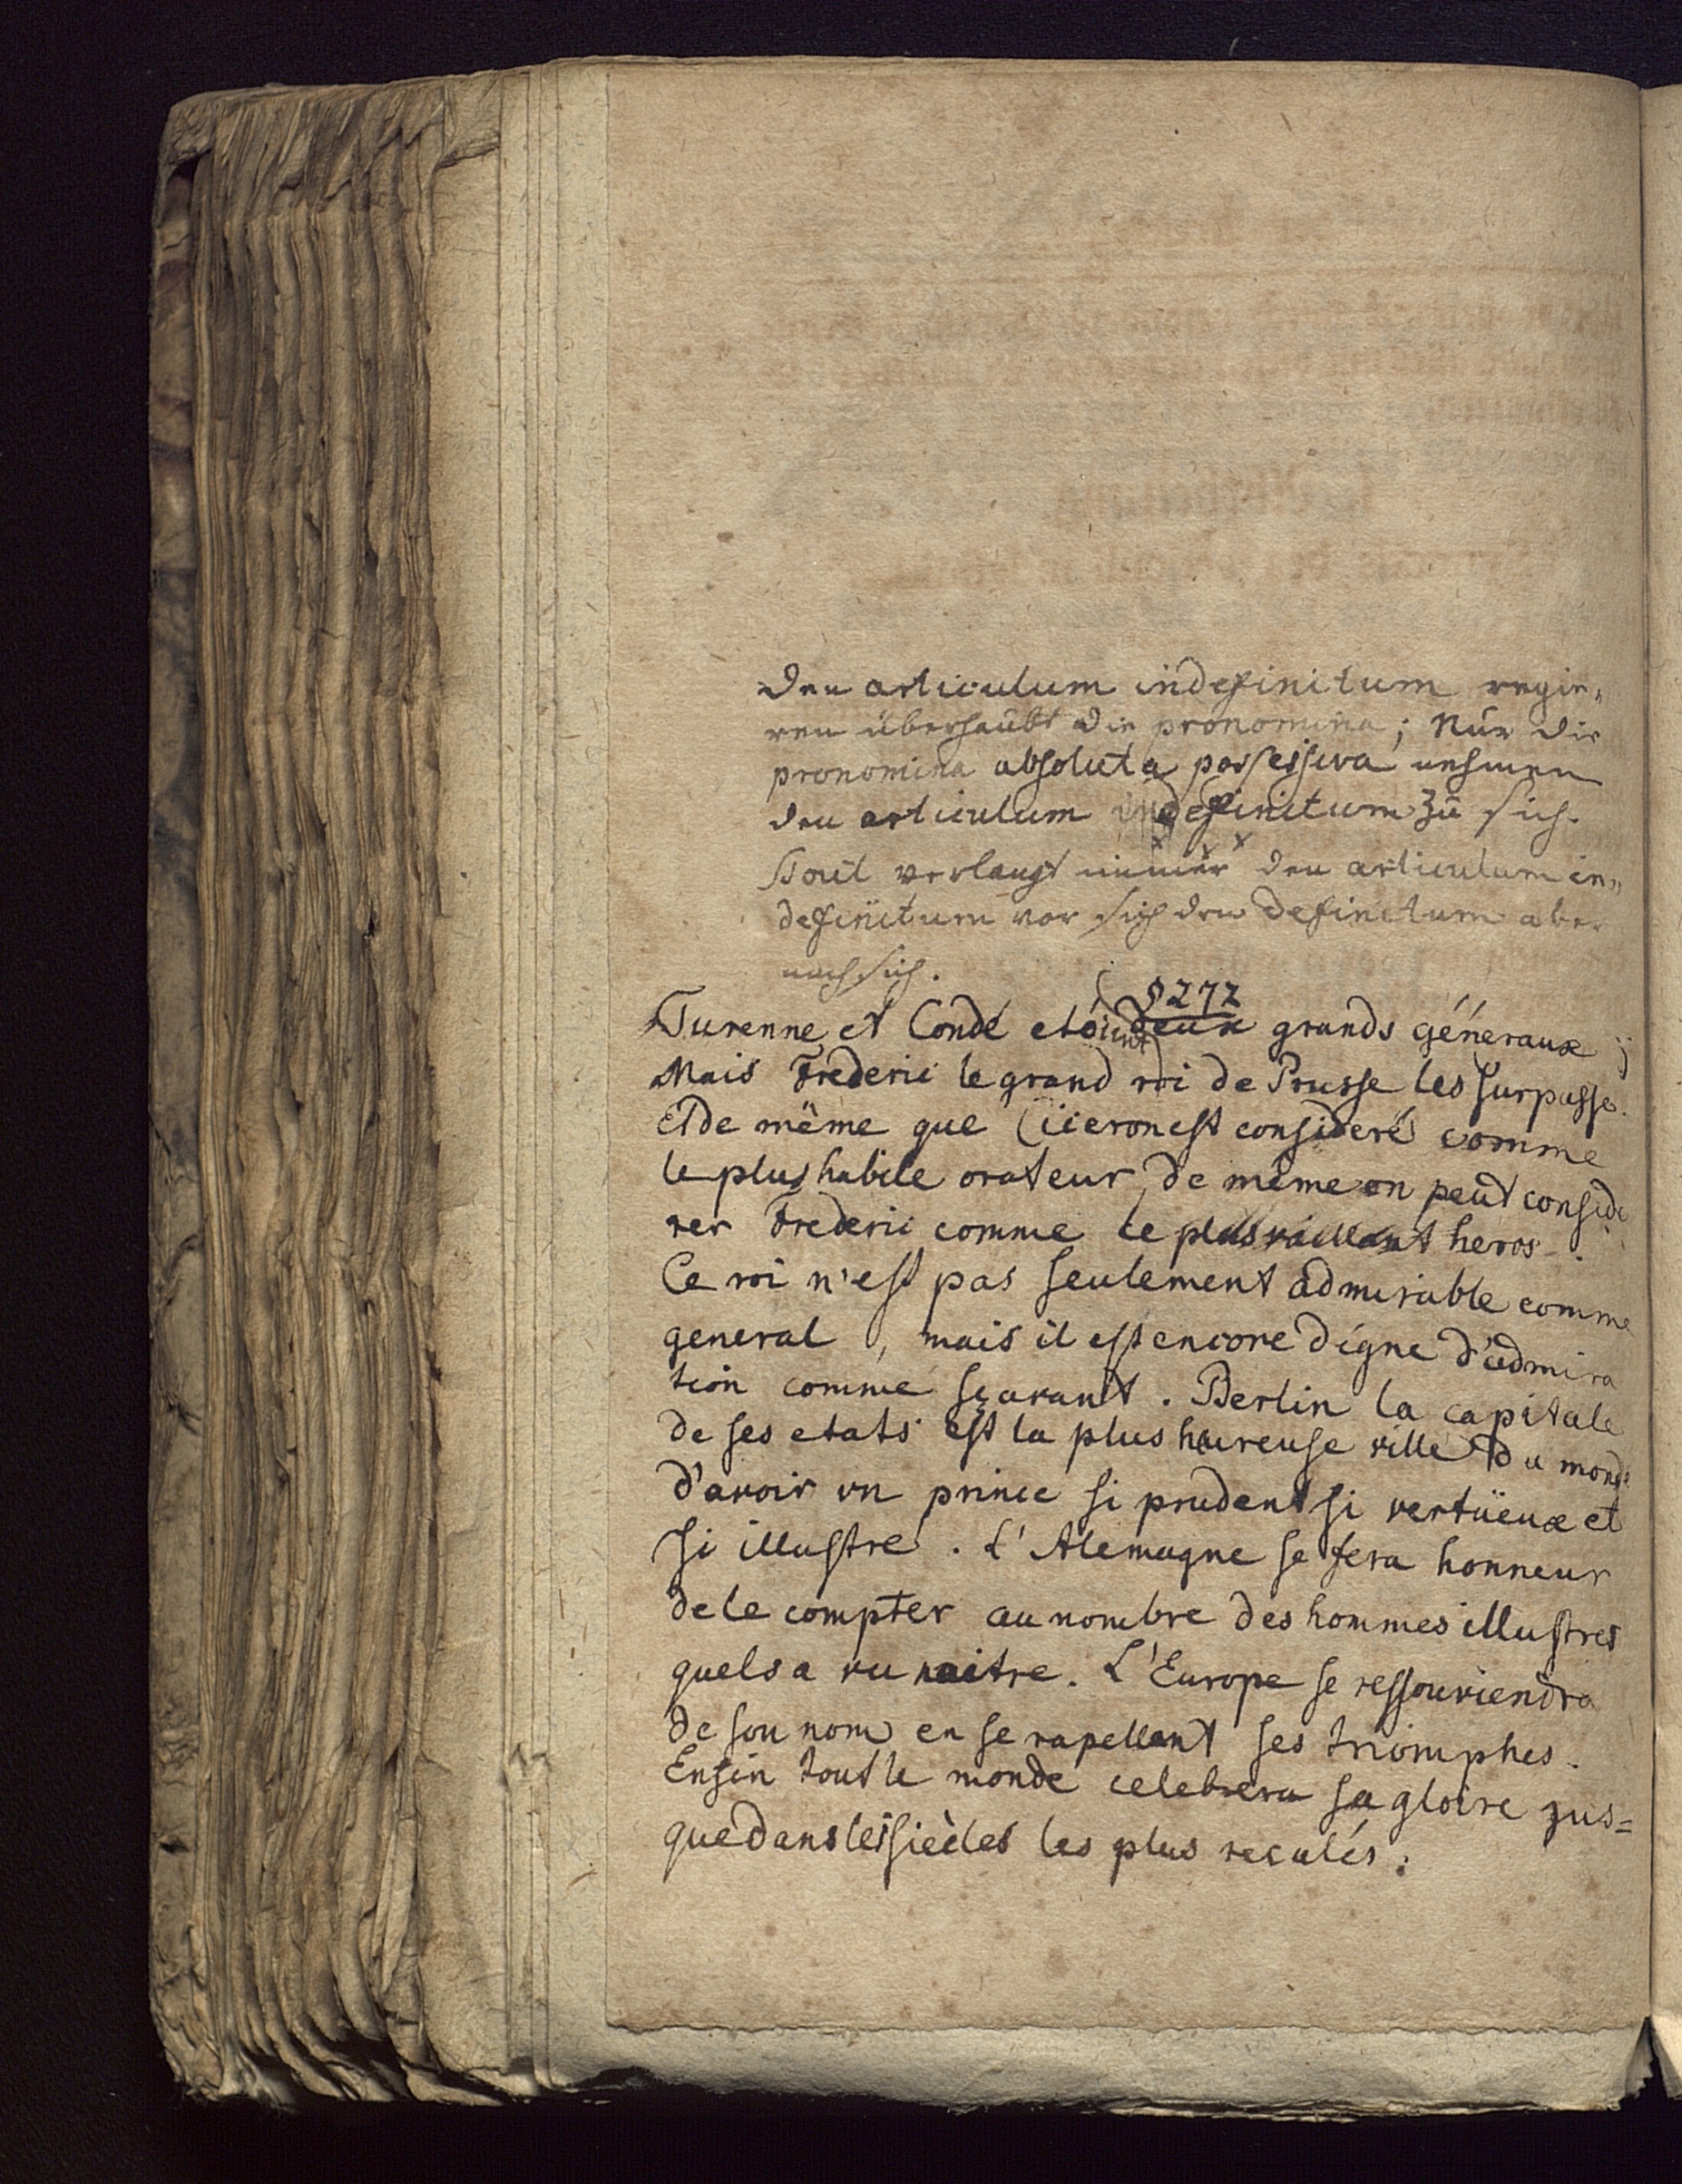 Den articulum indefinitum regie„
ren überhaubt die pronomina; Nur die
pronomina absoluta possessiva nehmen
den articulum indefinitum zu sich.
Tout verlangt immer den articulum in„
definitum vor sich den definitum aber
nach sich.
§ 272
Turenne et Condé etoient deux grands géneraux;
Mais Frederic le grand roi de Prusse les surpasse.
Et de même que Ciceron est consideré comme
le plus habile orateur, de même on peut conside
rer Frederic comme le plus vaillant heros.
Ce roi n'est pas seulement admirable comme
general, mais il est encore digne d'admira
tion comme sçavant. Berlin la capitale
de ses etats est la plus heureuse ville du monde
d'avoir un prince si prudent si vertüeux et
si illustre. L'Alemagne se fera honneur
de le compter au nombre des hommes illustres
quels a vu naitre. L'Europe se ressouviendra
de son nom en se rapellant ses triomphes.
Enfin tout le monde celebrera sa gloire jus=
que dans les siècles les plus reculés.